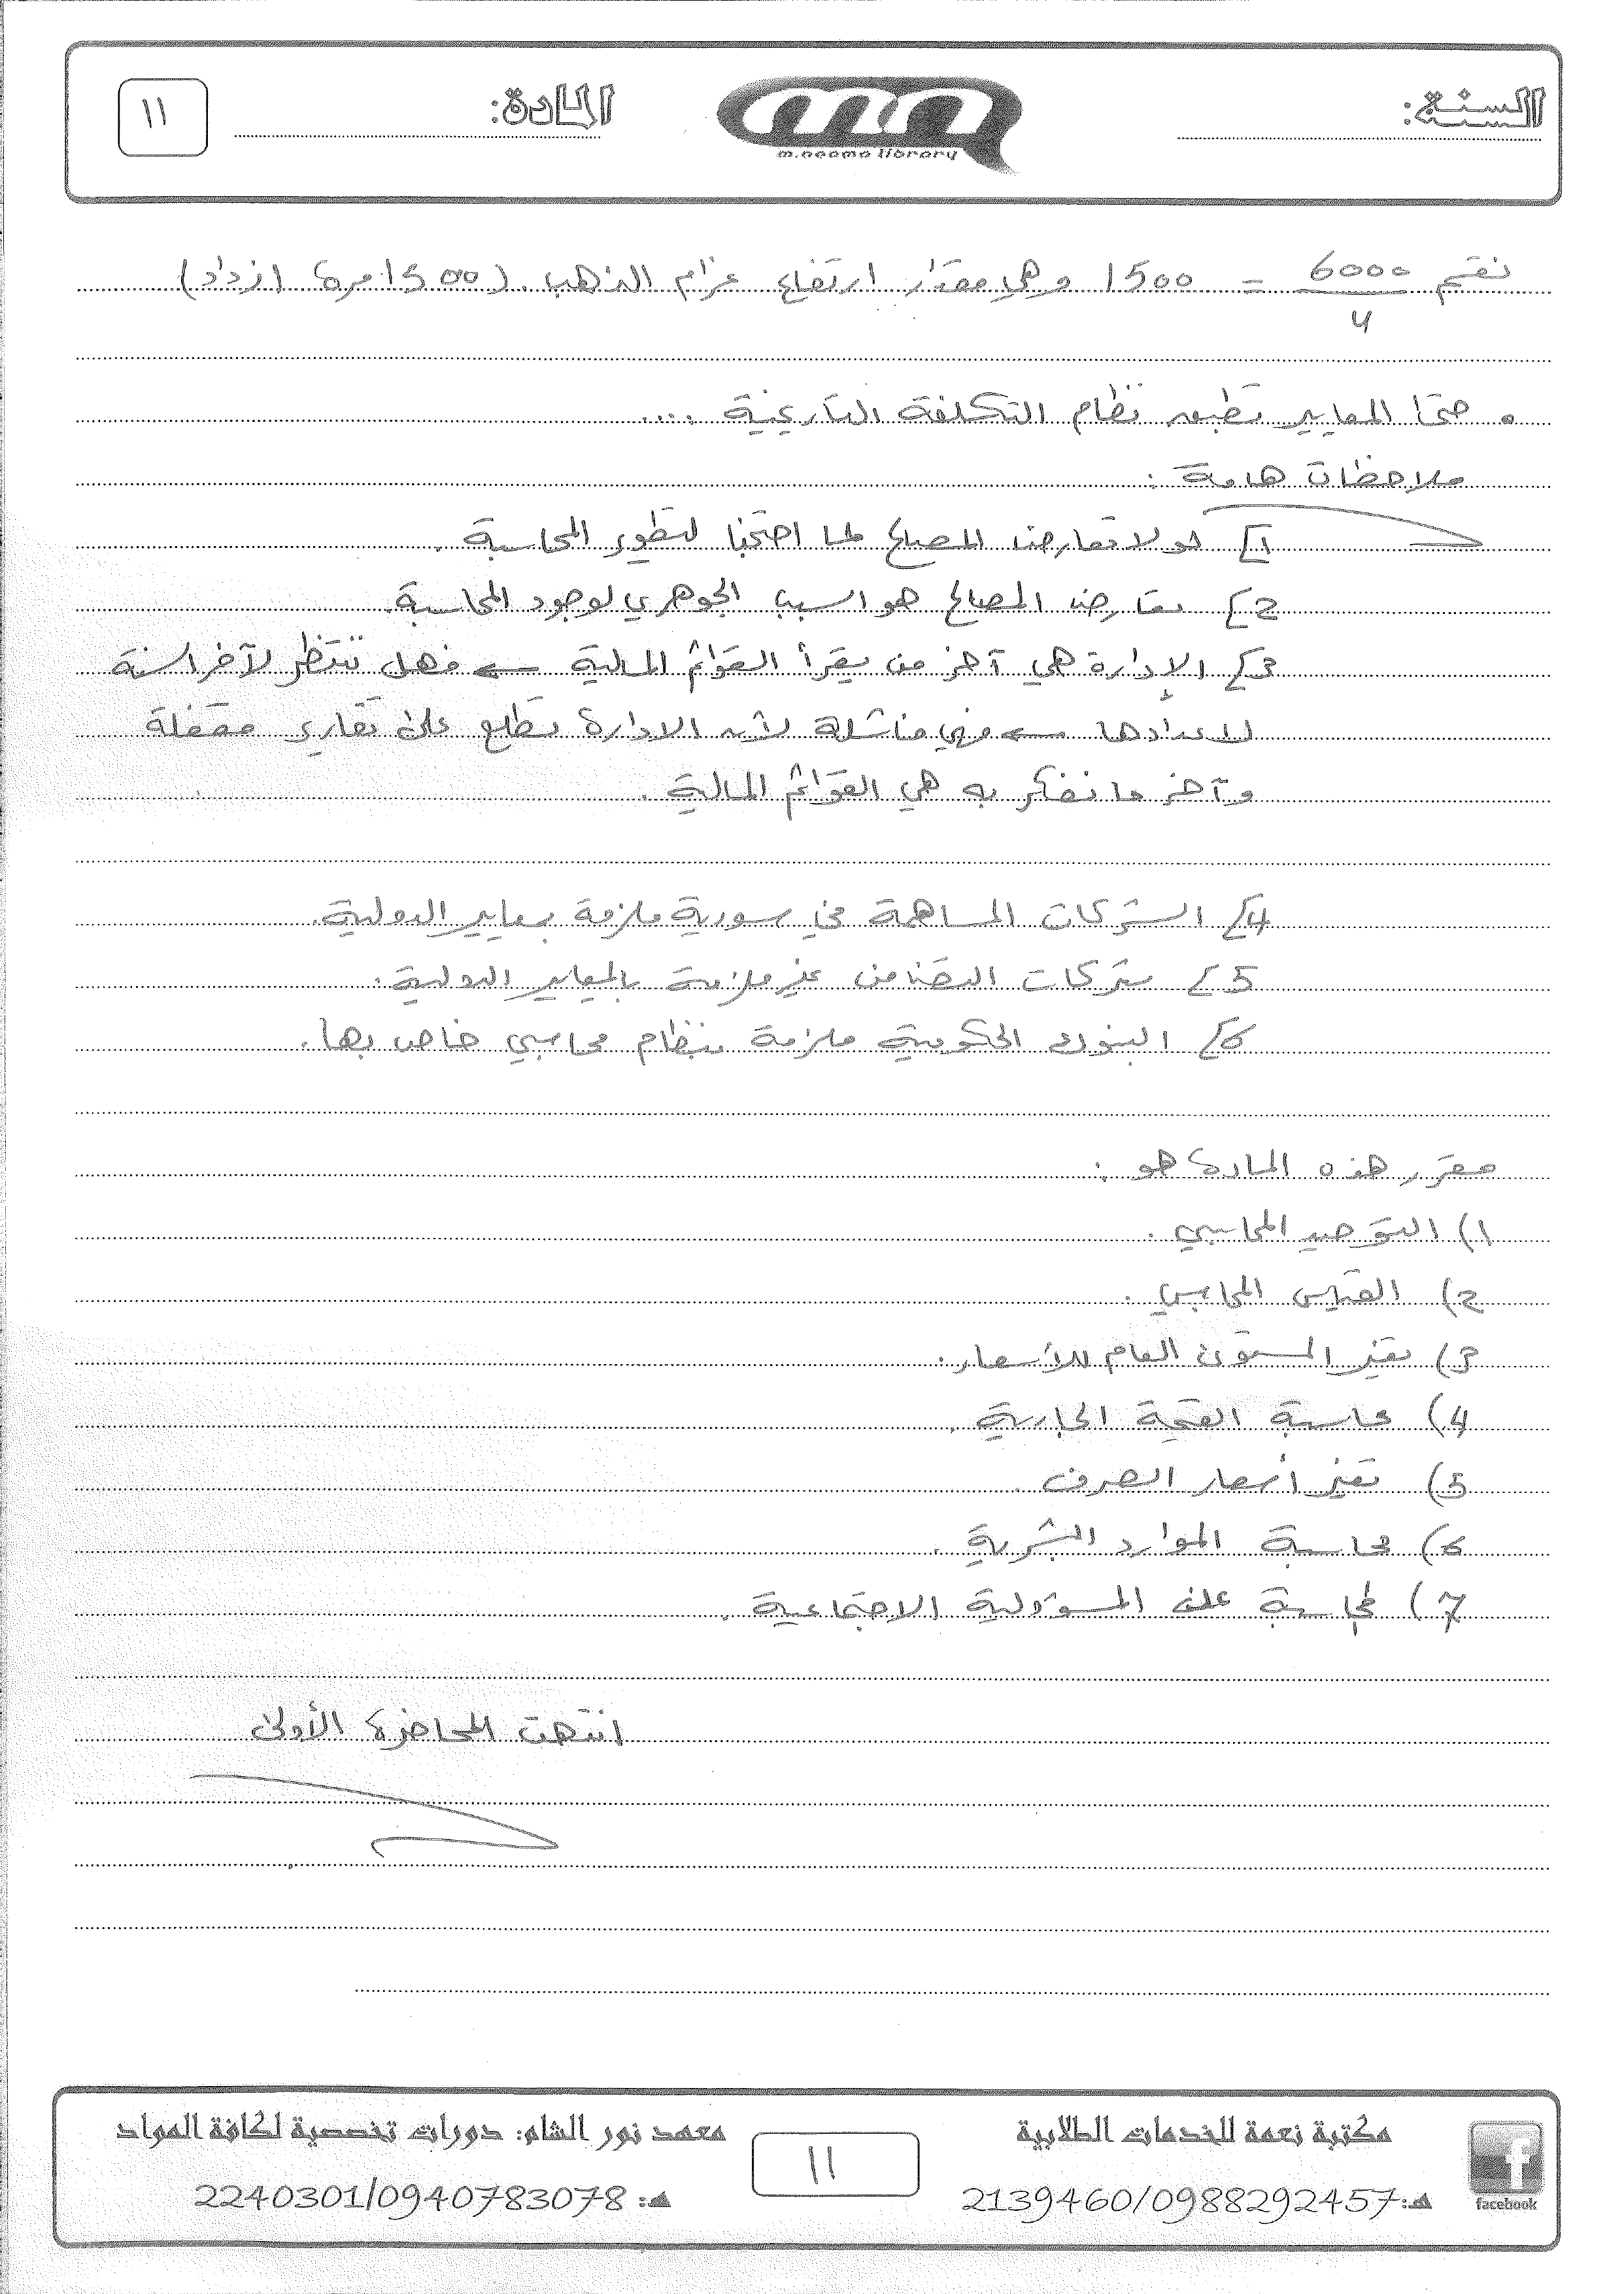 السنة:
m.neama library
المادة:
11
نقسم 6000/4 = 1500 وهي مقدار ارتفاع غرام الذهب. (1500 مرة ازداد)
• حتى المعايير تطبق نظام التكلفة التاريخية ....
ملاحظات هامة:
1] لولا تعارض المصالح لما احتجنا لتطوير المحاسبة.
2] تعارض المصالح هو السبب الجوهري لوجود المحاسبة.
3] الإدارة هي آخر من يقرأ القوائم المالية ← فهل تنتظر لآخر السنة
لاعدادها ← فهي فاشلة لأن الادارة تطلع على تقارير مفصلة
وآخر ما نفكر به هي القوائم المالية.
4] الشركات المساهمة في سورية ملزمة بمعايير الدولية.
5] شركات التضامن غير ملزمة بالمعايير الدولية.
6] البنوك الحكومية ملزمة بنظام محاسبي خاص بها.
مقرر هذه المادة هو:
1) التوحيد المحاسبي.
2) القياس المحاسبي.
3) تغير المستوى العام للأسعار.
4) محاسبة القيمة الجارية.
5) تغير أسعار الصرف.
6) محاسبة الموارد البشرية.
7) محاسبة على المسؤولية الاجتماعية.
انتهت المحاضرة الأولى
مكتبة نعمة للخدمات الطلابية
هـ: 2139460/0988292457
facebook
11
معهد نور الشام: دورات تخصصية لكافة المواد
هـ: 2240301/0940783078